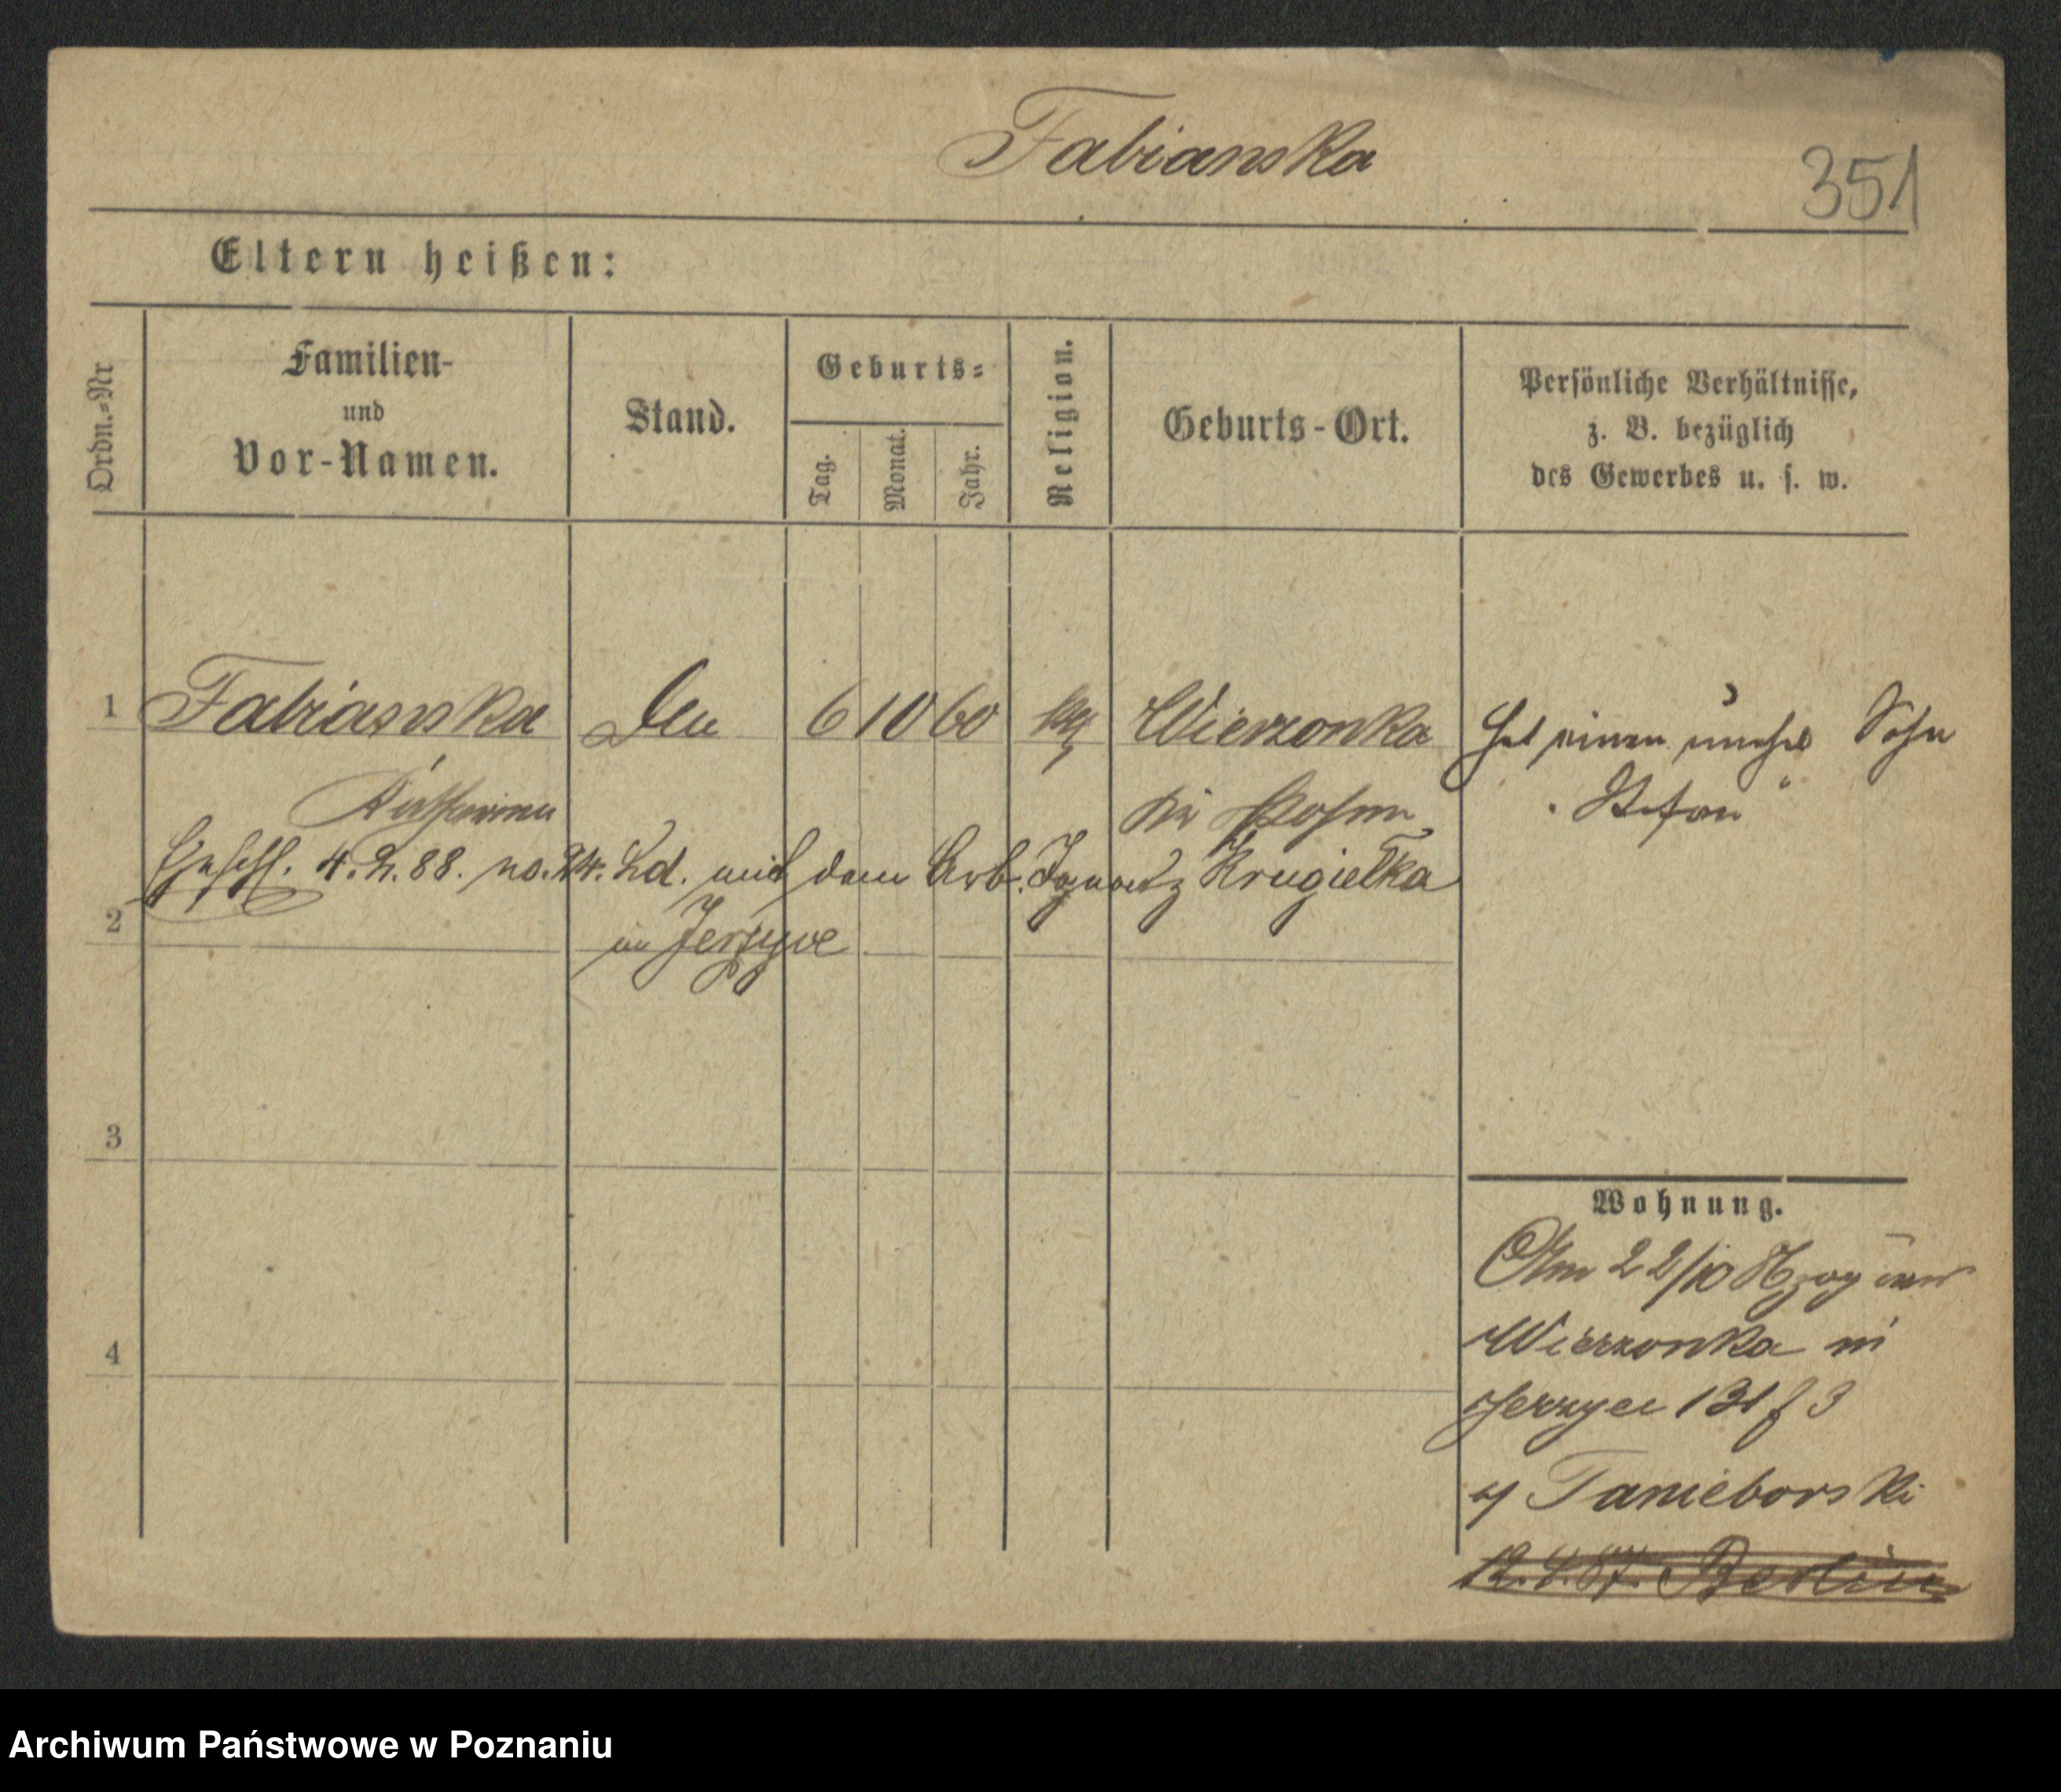 Fabianska
351
Eltern heißen:
Ordn.-Nr
Familien-
und
Vor-Namen.
Stand.
Geburts-
Tag.
Monat.
Jahr.
Religion.
Geburts-Ort.
Persönliche Verhältnisse,
z. B. bezüglich
des Gewerbes u. s. w.
1 Fabianska 6 10 60 Wierzonka Hat einen unehel Sohn
Katharina Kr Posen „Stefan“
Ehesch. 4.2.88. no. 24. Ld. mit dem Arb. Ignatz Krugielka
2
in Jerzyce
3
4
Wohnung.
Am 22/10 86 zog von
Wierzonka in
Jerzyce 131 f 3
b/ Tanieborski
12.4.87. Berlin
Archiwum Państwowe w Poznaniu